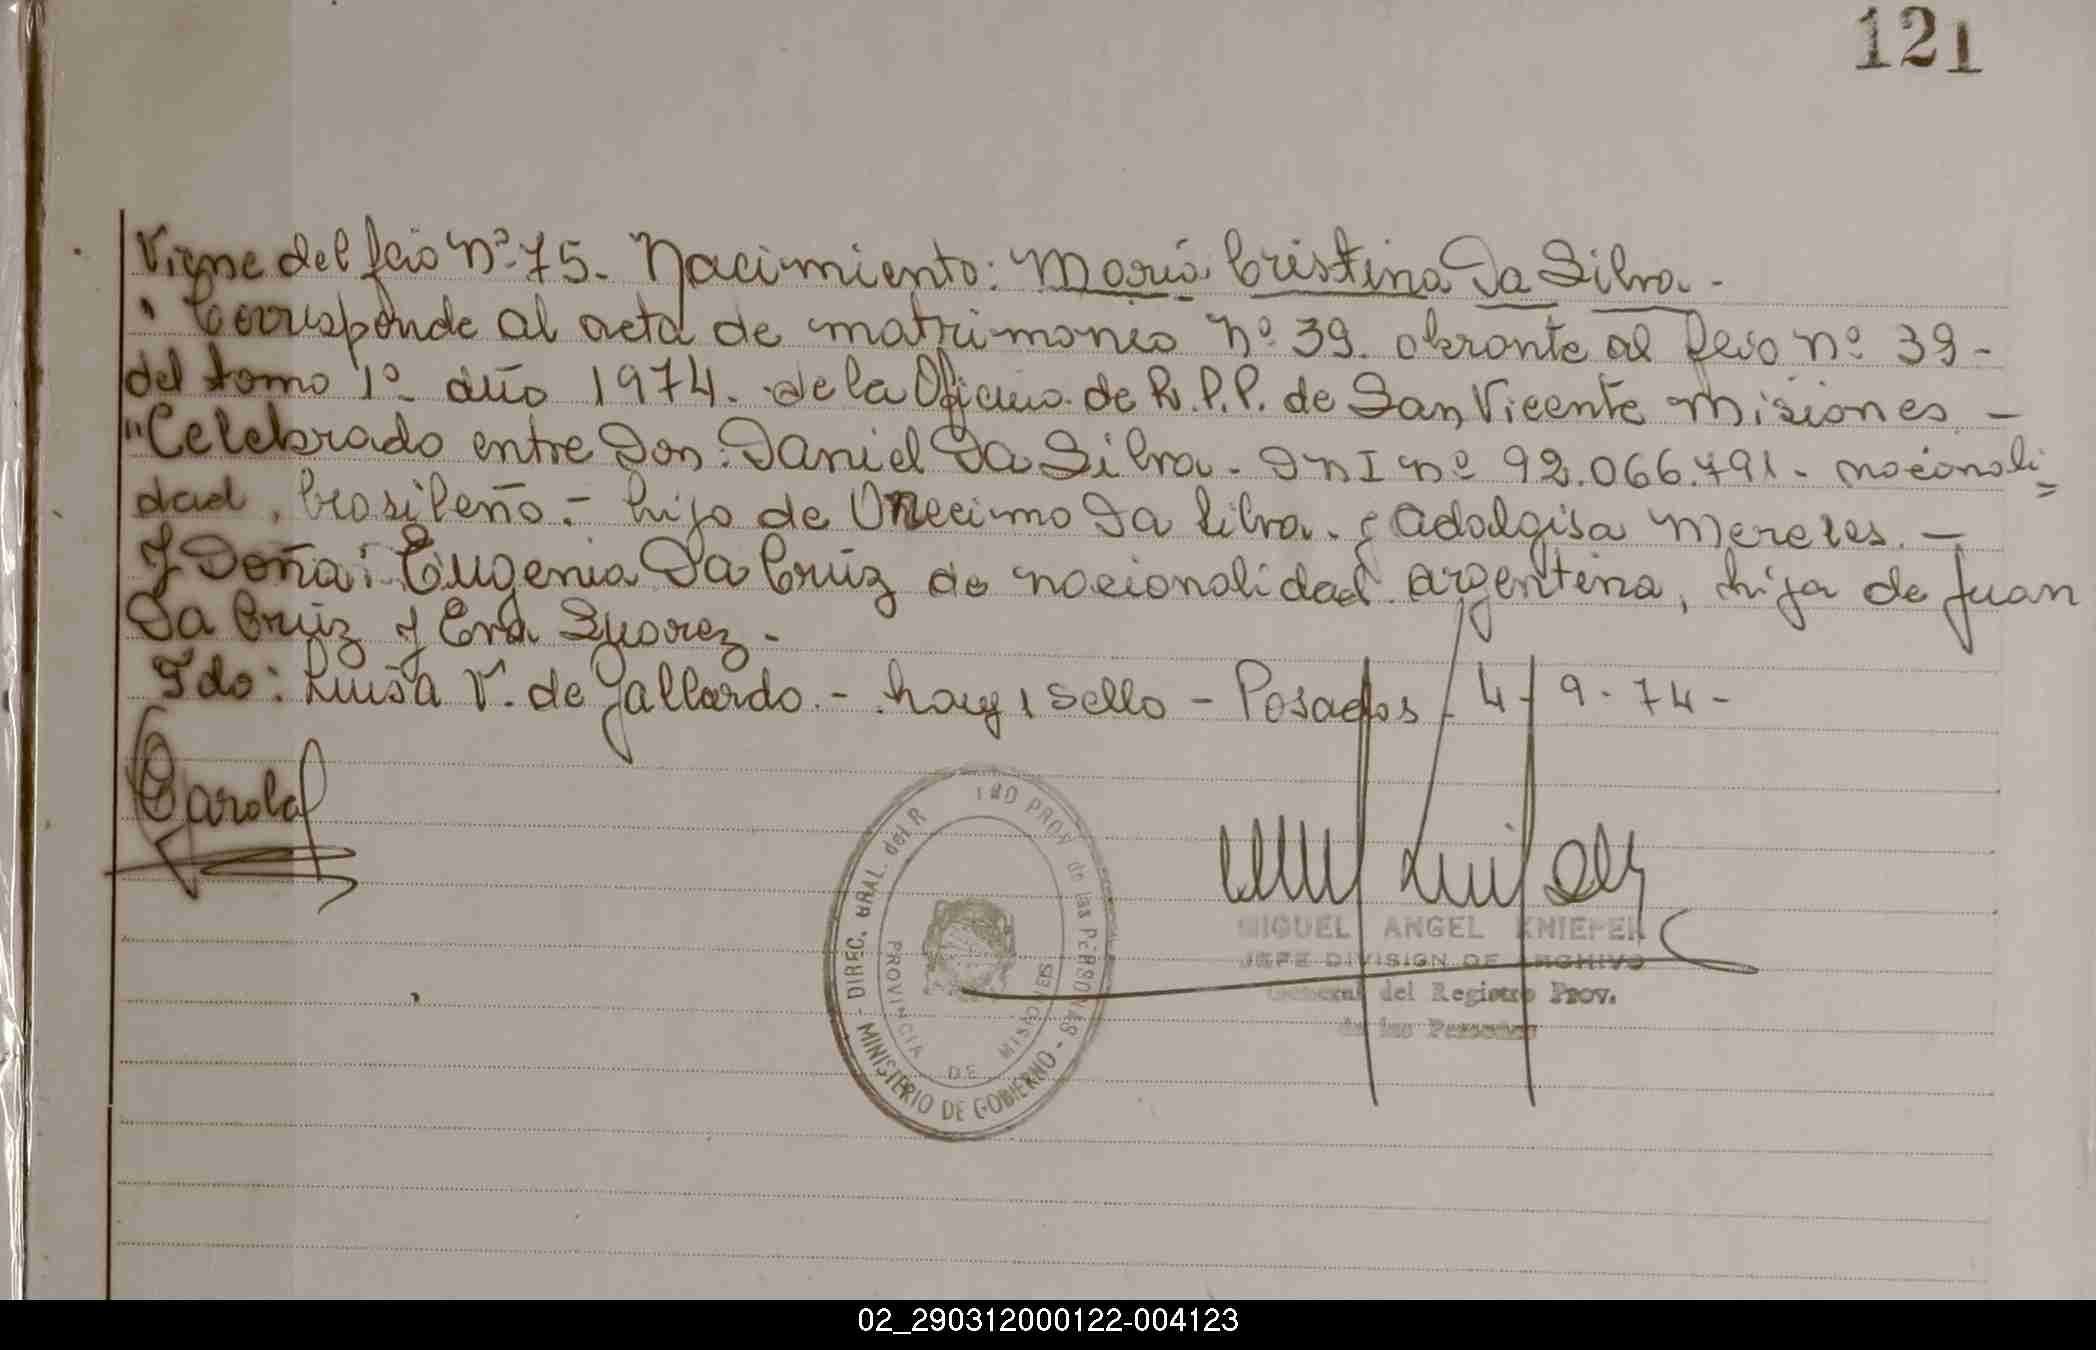 121
Viene del folio Nº 75. Nacimiento: María Cristina Da Silva.-
Corresponde al acta de matrimonio nº 39. obrante al folio nº 39-
del tomo 1º- año 1974. de la Oficina de R.P.P. de San Vicente Misiones.-
"Celebrado entre Don: Daniel Da Silva- DNI nº 92.066.791- nacionali=
dad, brasileño.- hijo de Onecimo Da Silva. y Adalgisa Mereles.-
Y Doña: Eugenia Da Cruz de nacionalidad argentina, hija de Juan
Da Cruz y Eva Suarez-
Fdo: Luisa V. de Gallardo.- hay 1 sello- Posadas 4-9-74-
DIREC. GRAL. del R PROV de las PERSONAS
MINISTERIO DE GOBIERNO
PROVINCIA DE MISIONES
MIGUEL ANGEL KNIEPER
JEFE DIVISION DE ARCHIVO
General del Registro Prov.
de las Personas
02_290312000122-004123